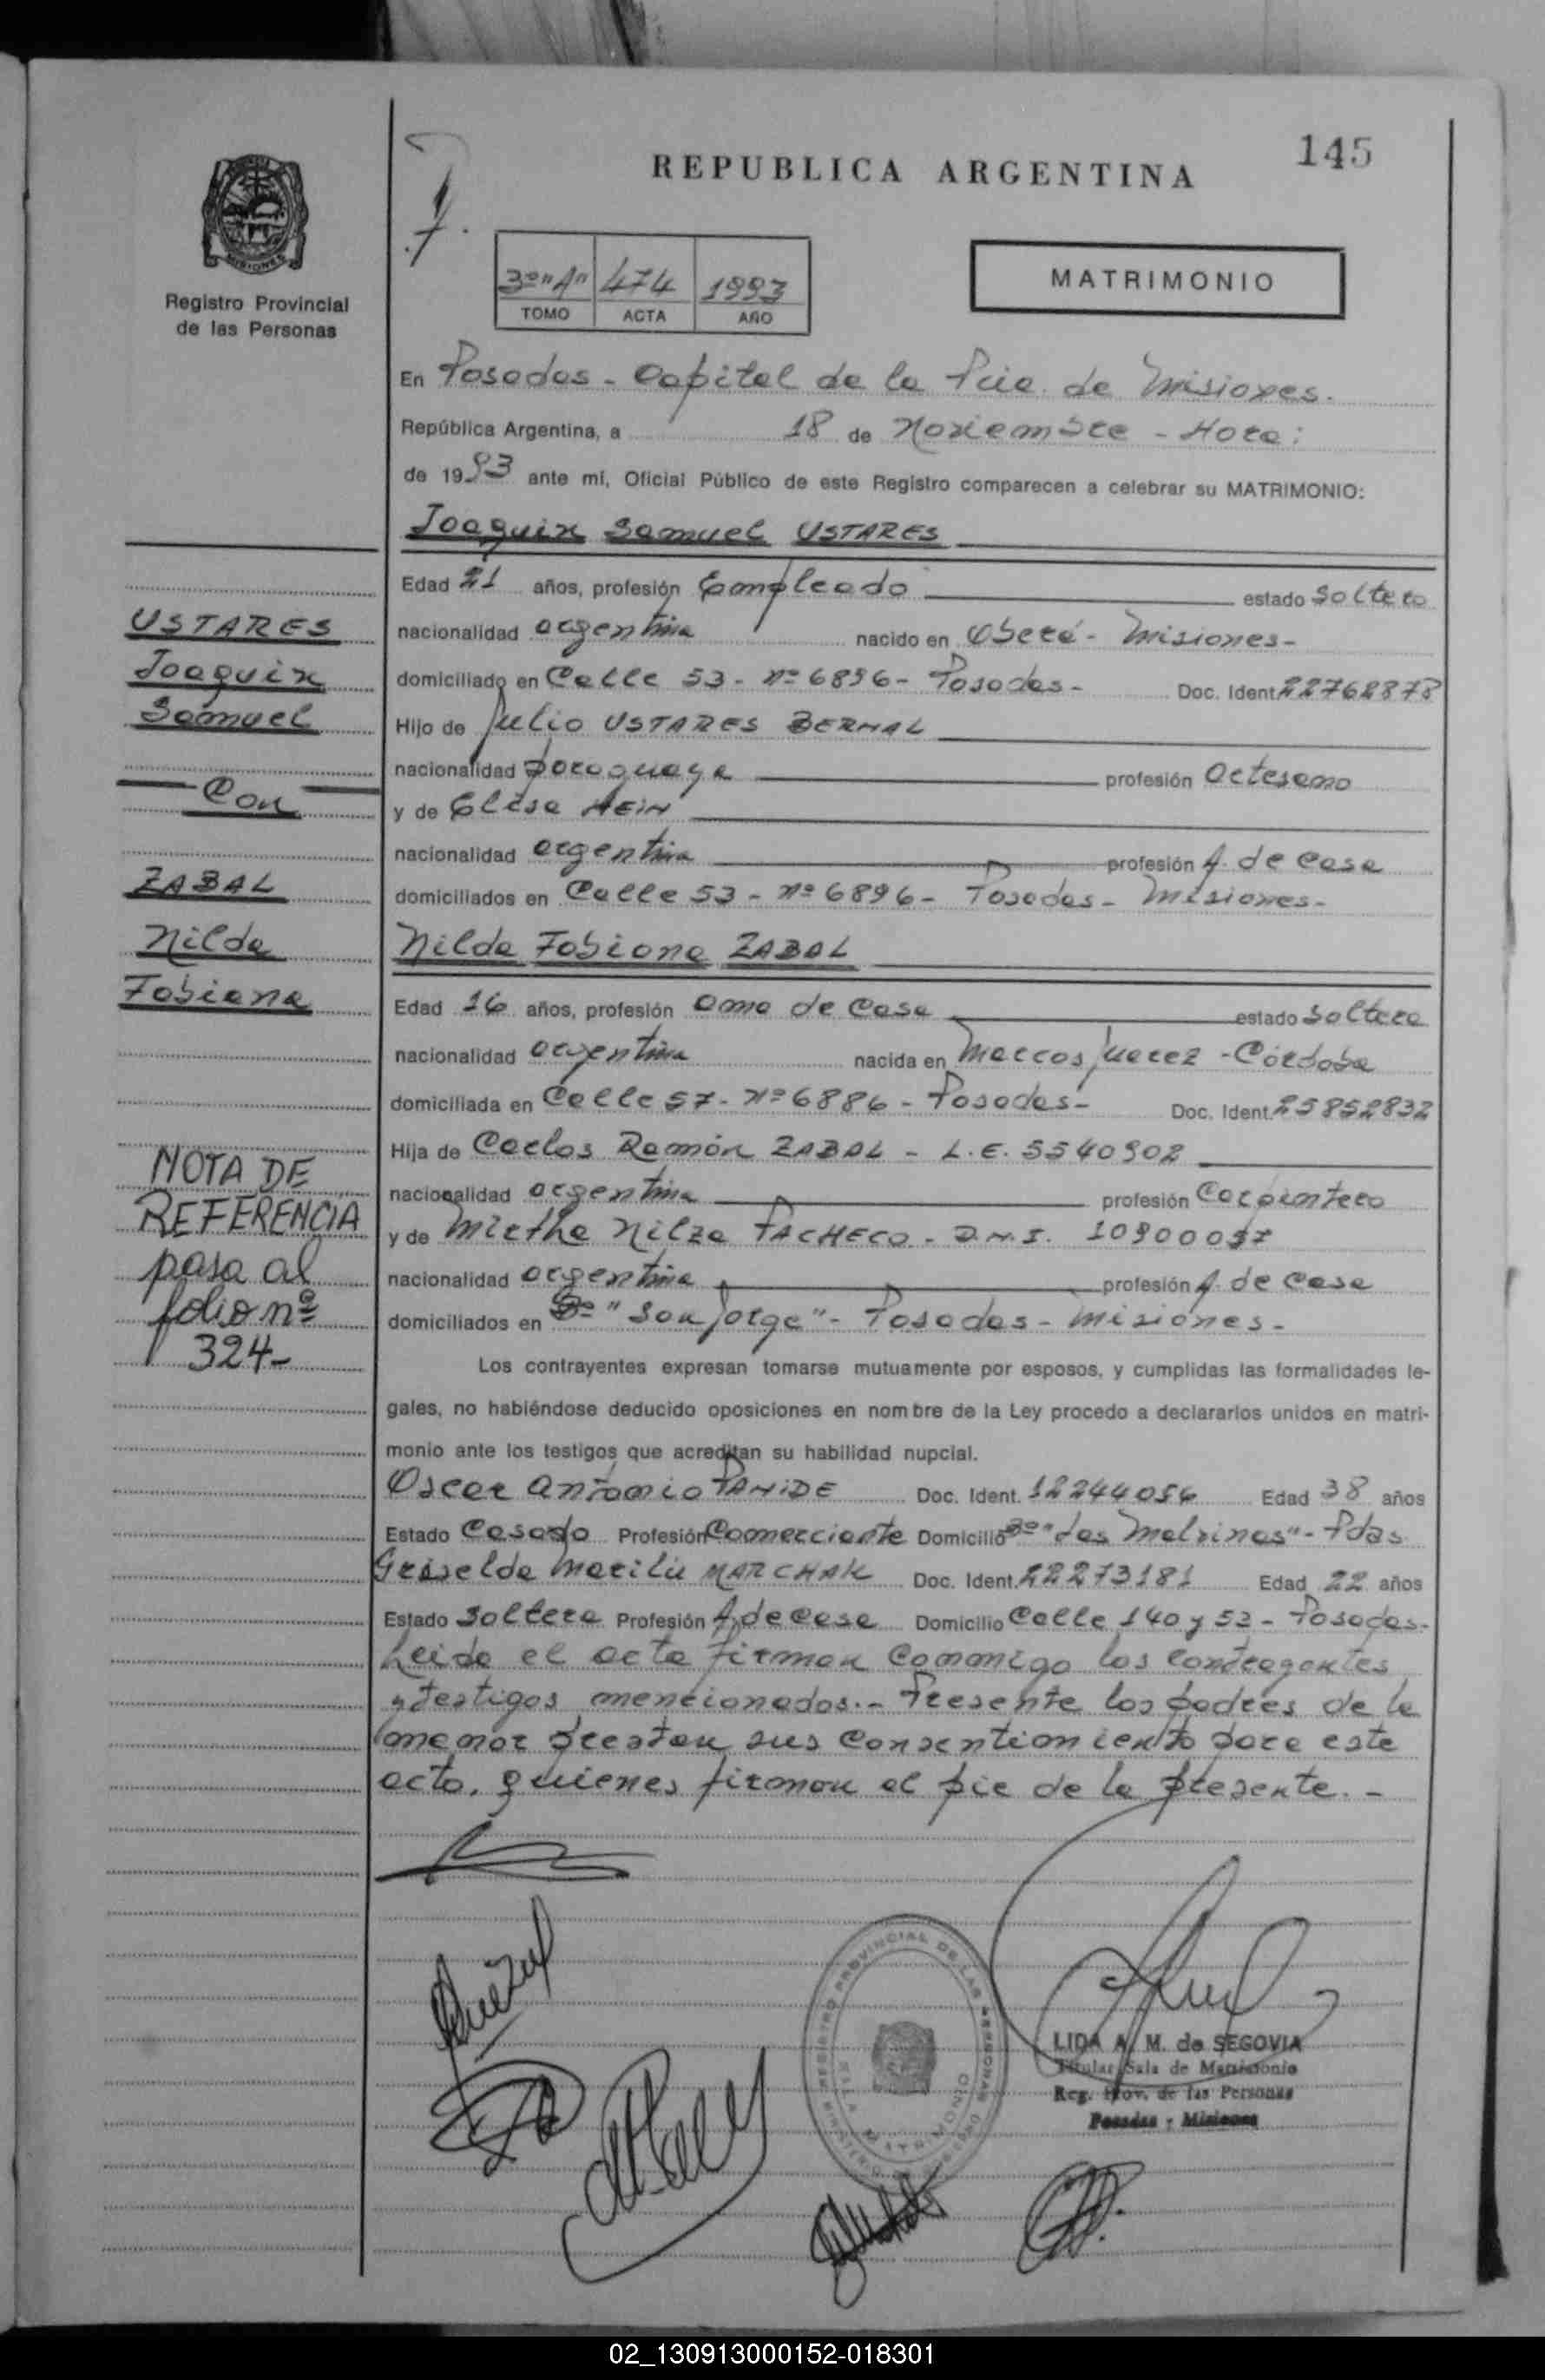 145
REPUBLICA ARGENTINA
MISIONES
Registro Provincial
de las Personas
3º "A" 474 1993
TOMO ACTA AÑO
MATRIMONIO
En Posadas - Capital de la Pcia. de Misiones.
República Argentina, a 18 de Noviembre - Hora:
de 1993 ante mí, Oficial Público de este Registro comparecen a celebrar su MATRIMONIO:
Joaquin Samuel USTARES
Edad 21 años, profesión Empleado estado Soltero
nacionalidad argentina nacido en Oberá - Misiones-
domiciliado en Calle 53 - Nº 6896 - Posadas - Doc. Ident. 22762878
Hijo de Julio USTARES BERNAL
nacionalidad paraguaya profesión Artesano
y de Elisa HEIN
nacionalidad argentina profesión A. de Casa
domiciliados en Calle 53 - Nº 6896 - Posadas - Misiones-
Nilda Fabiana ZABAL
Edad 16 años, profesión Ama de Casa estado Soltera
nacionalidad argentina nacida en Marcos Juarez - Córdoba
domiciliada en Calle 57 - Nº 6886 - Posadas - Doc. Ident. 25852832
Hija de Carlos Ramón ZABAL - L.E. 5540902
nacionalidad argentina profesión Carpintero
y de Mirtha Nilza PACHECO - D.N.I. 10900097
nacionalidad argentina profesión A. de Casa
domiciliados en Bº "San Jorge" - Posadas - Misiones -
Los contrayentes expresan tomarse mutuamente por esposos, y cumplidas las formalidades le-
gales, no habiéndose deducido oposiciones en nombre de la Ley procedo a declararlos unidos en matri-
monio ante los testigos que acreditan su habilidad nupcial.
Oscar Antonio PANIDE Doc. Ident. 12244056 Edad 38 años
Estado Casado Profesión Comerciante Domicilio Bº "Las Malvinas" - Pdas
Griselda Marilú MARCHAK Doc. Ident. 22273181 Edad 22 años
Estado Soltera Profesión A. de Casa Domicilio Calle 140 y 53 - Posadas-
Leida el acta firman conmigo los contrayentes
y testigos mencionados.- Presente los padres de la
menor prestan sus consentimiento para este
acto, quienes firman al pie de la presente. -
USTARES
Joaquin
Samuel
Con
ZABAL
Nilda
Fabiana
NOTA DE
REFERENCIA
pasa al
folio nº
324-
LIDA A. M. de SEGOVIA
Titular Sala de Matrimonio
Reg. Prov. de las Personas
Posadas - Misiones
REGISTRO PROVINCIAL DE LAS PERSONAS
SALA MATRIMONIO
02_130913000152-018301